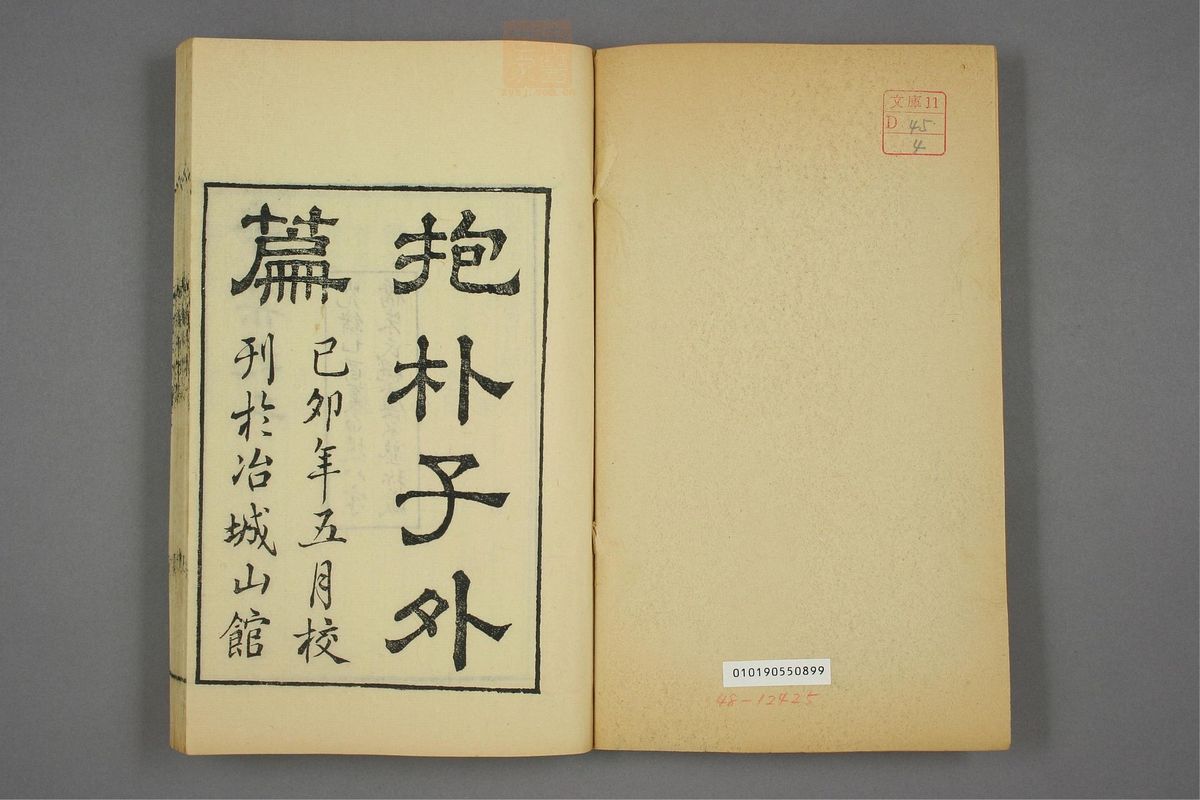 抱朴子外
篇
己卯年五月校
刊於冶城山館
文庫11
D 45
4
010190550899
48-12425